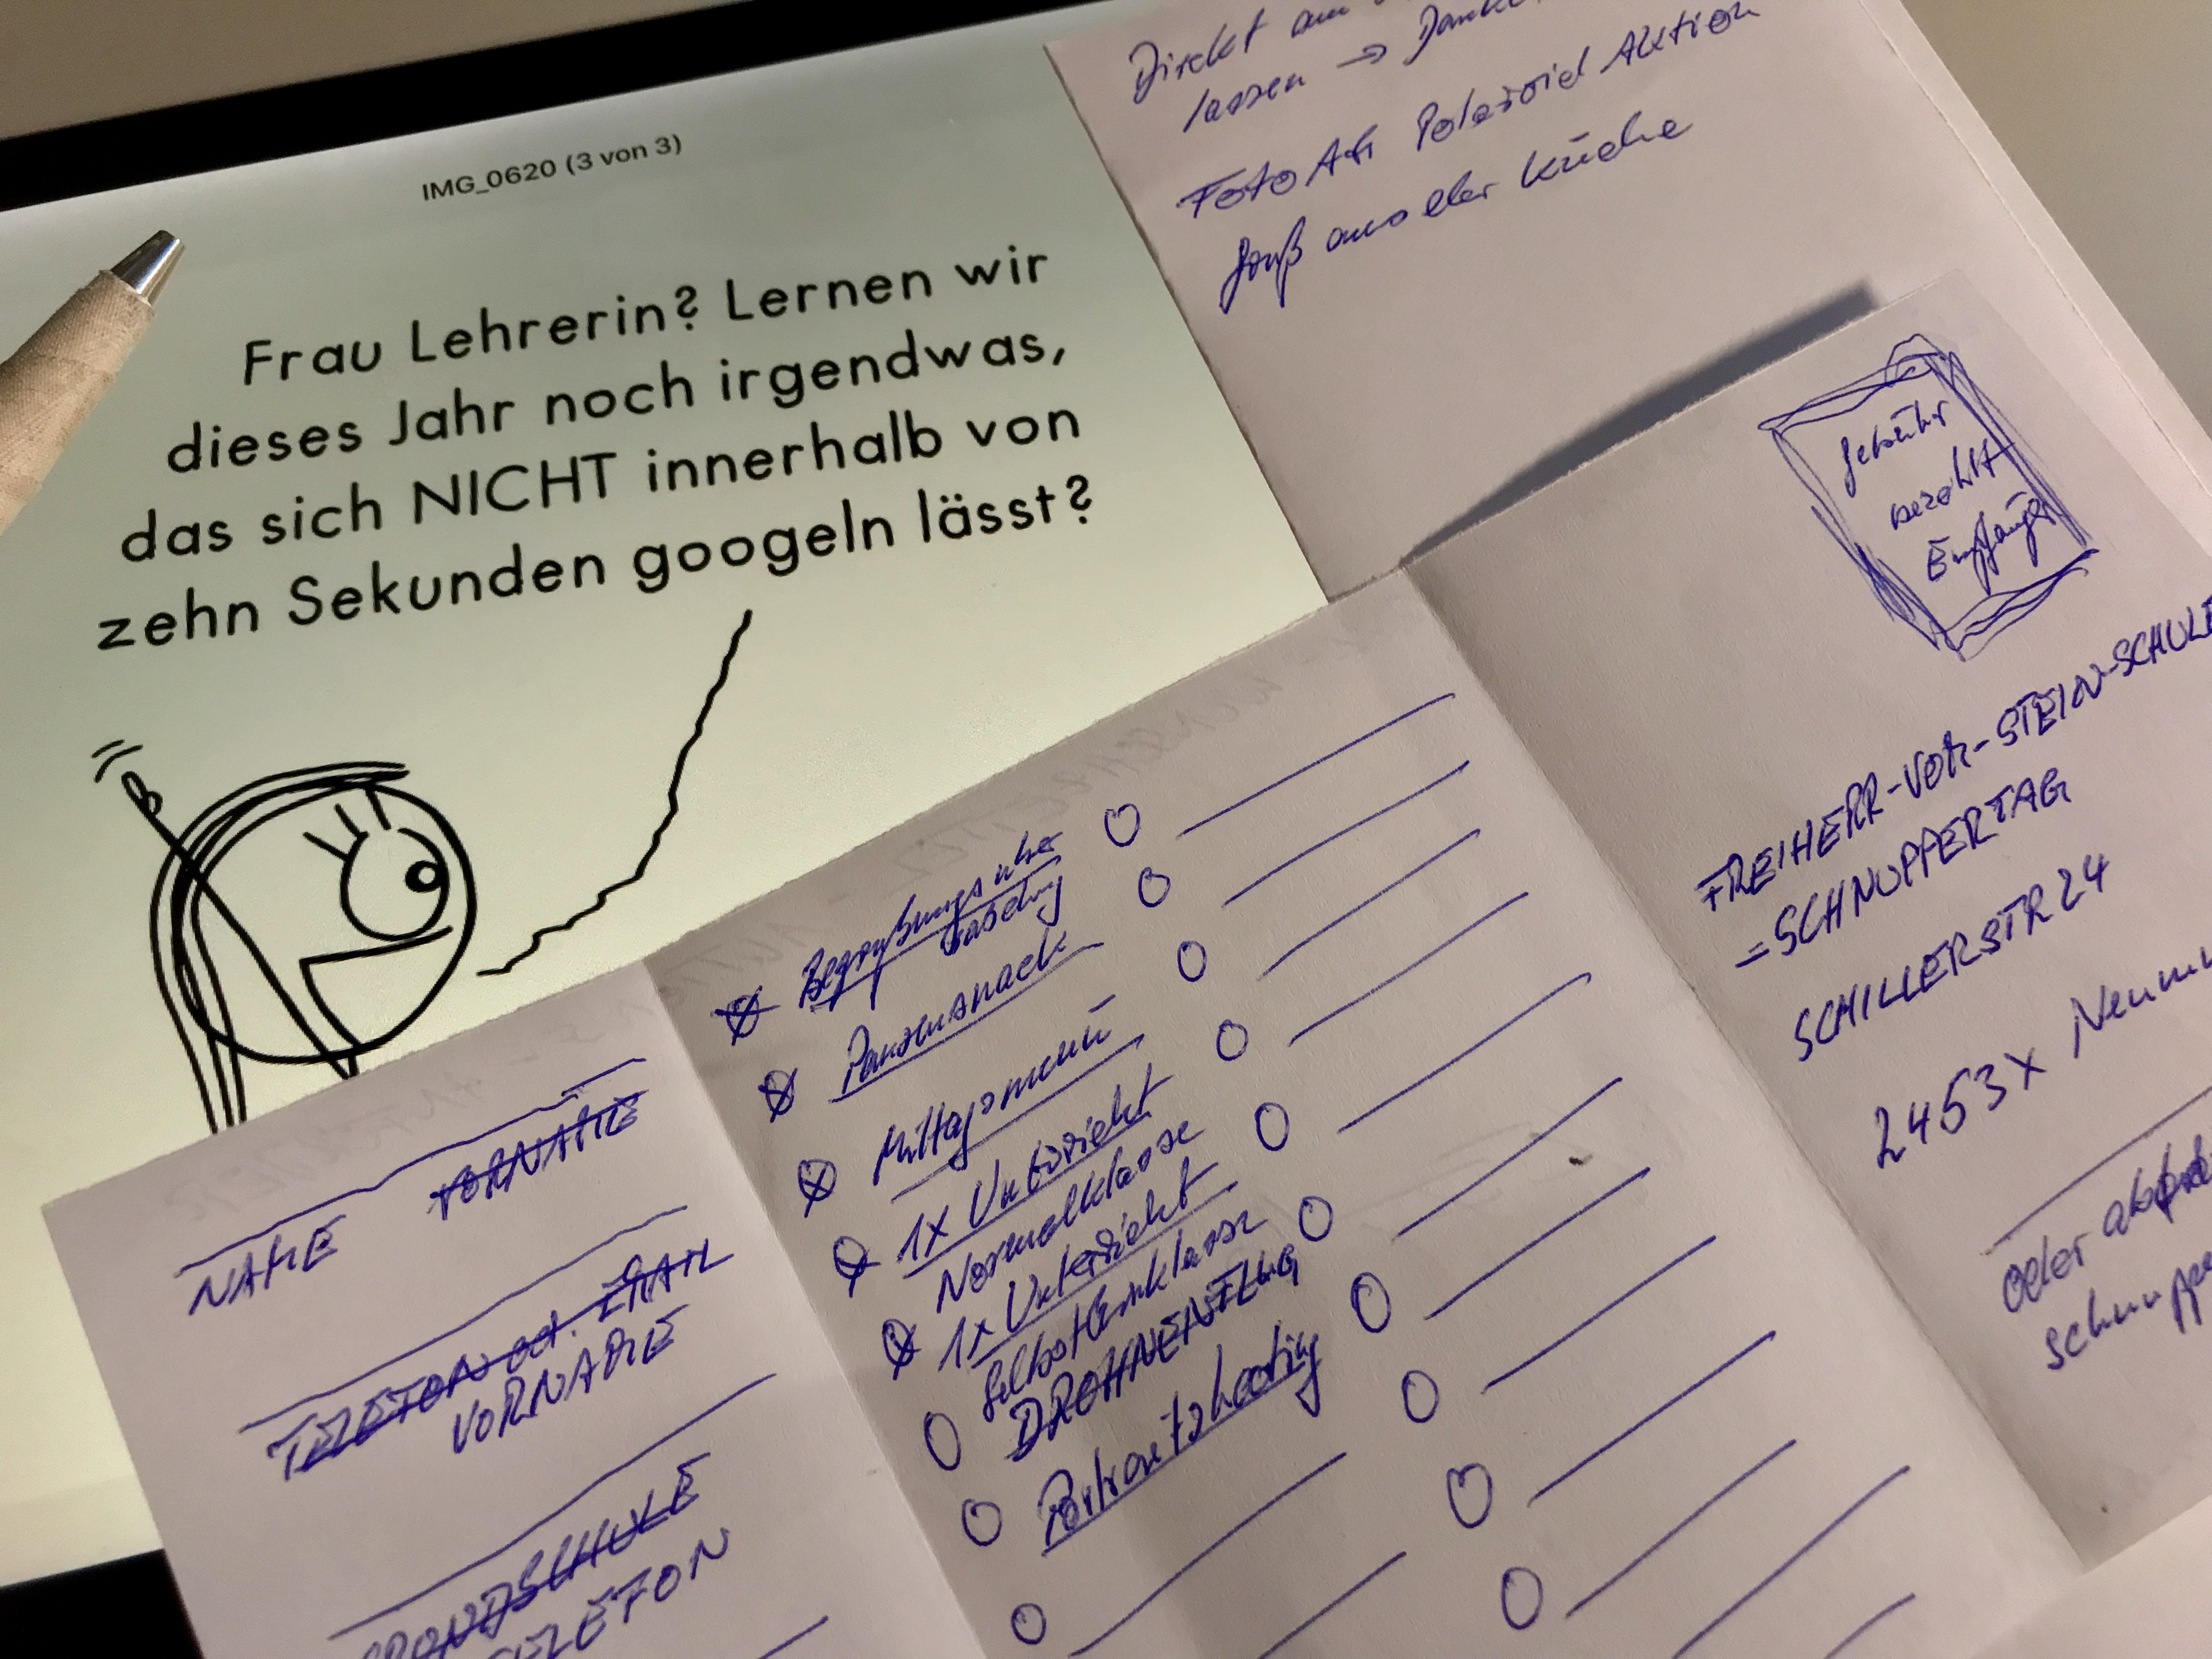 IMG_0620 (3 von 3)
Frau Lehrerin? Lernen wir
dieses Jahr noch irgendwas,
das sich NICHT innerhalb von
zehn Sekunden googeln lässt?
Direkt am
lassen → Danke
Foto Polaroid Aktion
Gruß aus der Küche
Gebühr
bezahlt
Empfänger
FREIHERR-VOM-STEIN-SCHULE
=SCHNUPPERTAG
SCHILLERSTR 24
2453x Neumü
oder
Schnuppe
NAME VORNAME
TELEFON od. EMAIL
VORNAME
GRUNDSCHULE
TELEFON
Begrüßungs
Pausensnack
Mittagsmenü
1x Unterricht
Normalklasse
1x Unterricht
Selbstlernklasse
DROHNENFLUG
Portraitshooting